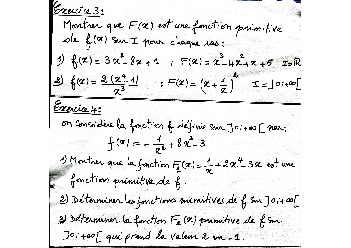 Exercice 3:
Montrer que F(x) est une fonction primitive
de f(x) sur I pour chaque cas:
1) f(x) = 3x² - 8x + 1 ; F(x) = x³ - 4x² + x + 5 I = ℝ
2) f(x) = 2(x⁴-1)/x³ ; F(x) = (x + 1/x)² I = ]0;+∞[
Exercice 4:
on considère la fonction f définie sur ]0;+∞[ par:
f(x) = -1/x² + 8x³ - 3
1) Montrer que la fonction F₁(x) = 1/x + 2x⁴ - 3x est une
fonction primitive de f.
2) Déterminer les fonctions primitives de f sur ]0;+∞[
3) déterminer la fonction F₂(x) primitive de f sur
]0;+∞[ qui prend la valeur 2 en -1.